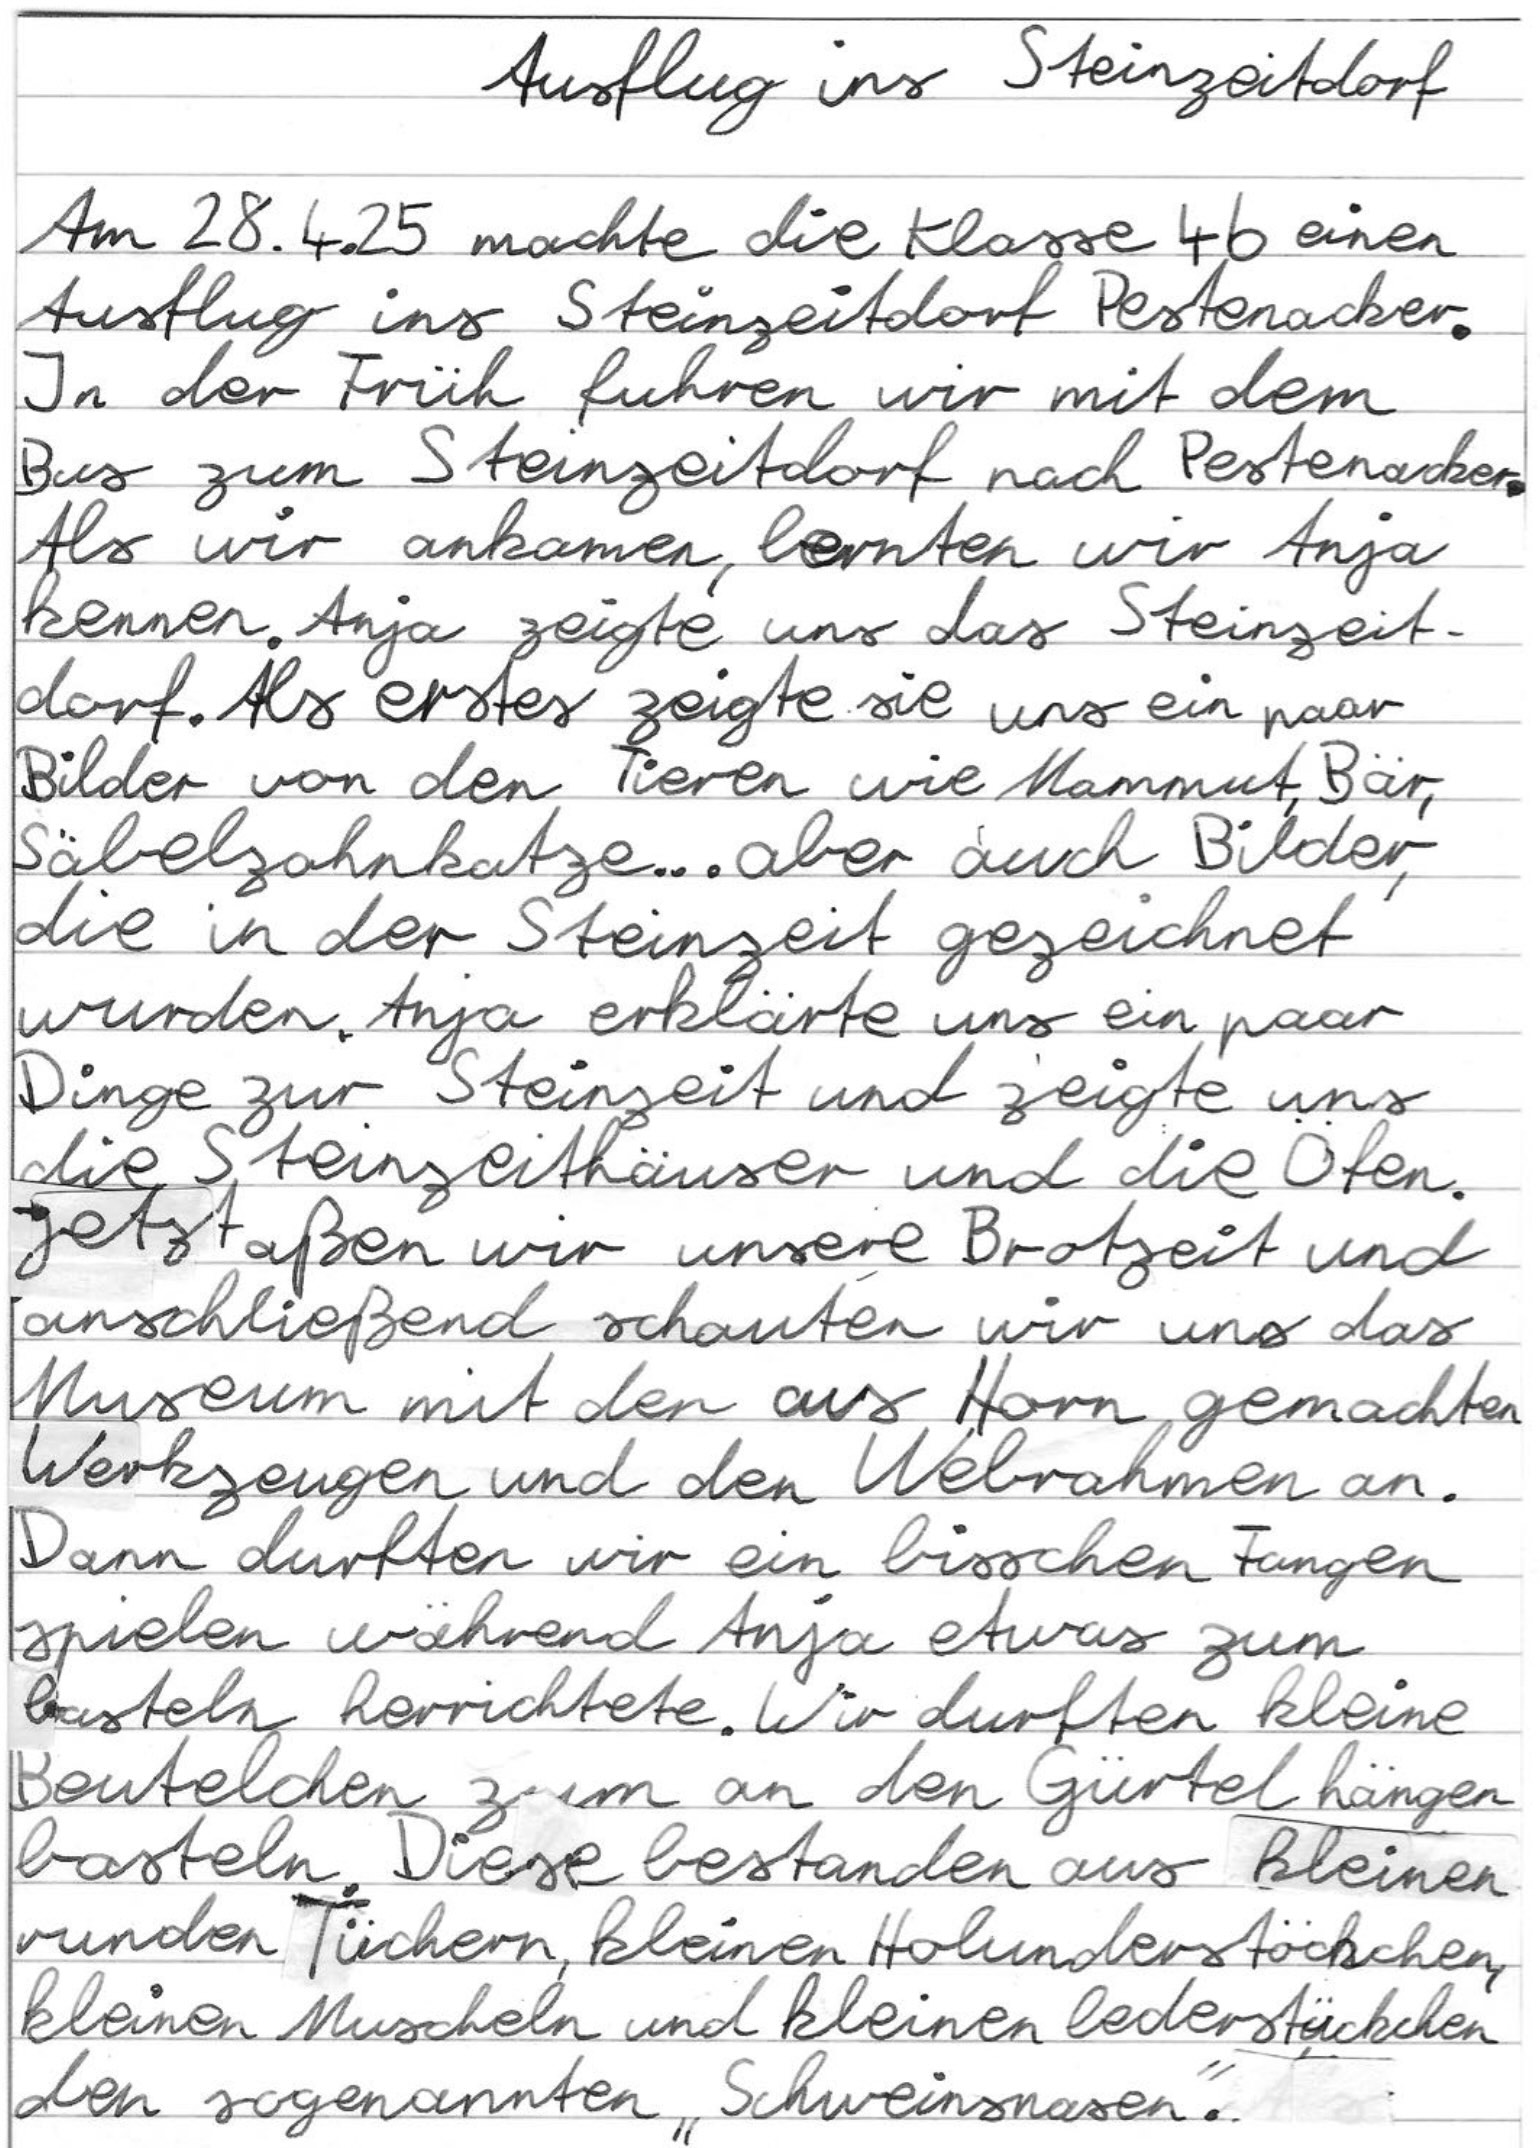 Ausflug ins Steinzeitdorf
Am 28.4.25 machte die Klasse 4b einen
Ausflug ins Steinzeitdorf Pestenacker.
In der Früh fuhren wir mit dem
Bus zum Steinzeitdorf nach Pestenacker.
Als wir ankamen, lernten wir Anja
kennen. Anja zeigte uns das Steinzeit-
dorf. Als erstes zeigte sie uns ein paar
Bilder von den Tieren wie Mammut, Bär,
Säbelzahnkatze... aber auch Bilder,
die in der Steinzeit gezeichnet
wurden. Anja erklärte uns ein paar
Dinge zur Steinzeit und zeigte uns
die Steinzeithäuser und die Öfen.
Jetzt aßen wir unsere Brotzeit und
anschließend schauten wir uns das
Museum mit den aus Horn gemachten
Werkzeugen und den Webrahmen an.
Dann durften wir ein bisschen Fangen
spielen während Anja etwas zum
basteln herrichtete. Wir durften kleine
Beutelchen zum an den Gürtel hängen
basteln. Diese bestanden aus kleinen
runden Tüchern, kleinen Holunderstöckchen,
kleinen Muscheln und kleinen lederstückchen
den sogenannten „Schweinsnasen".